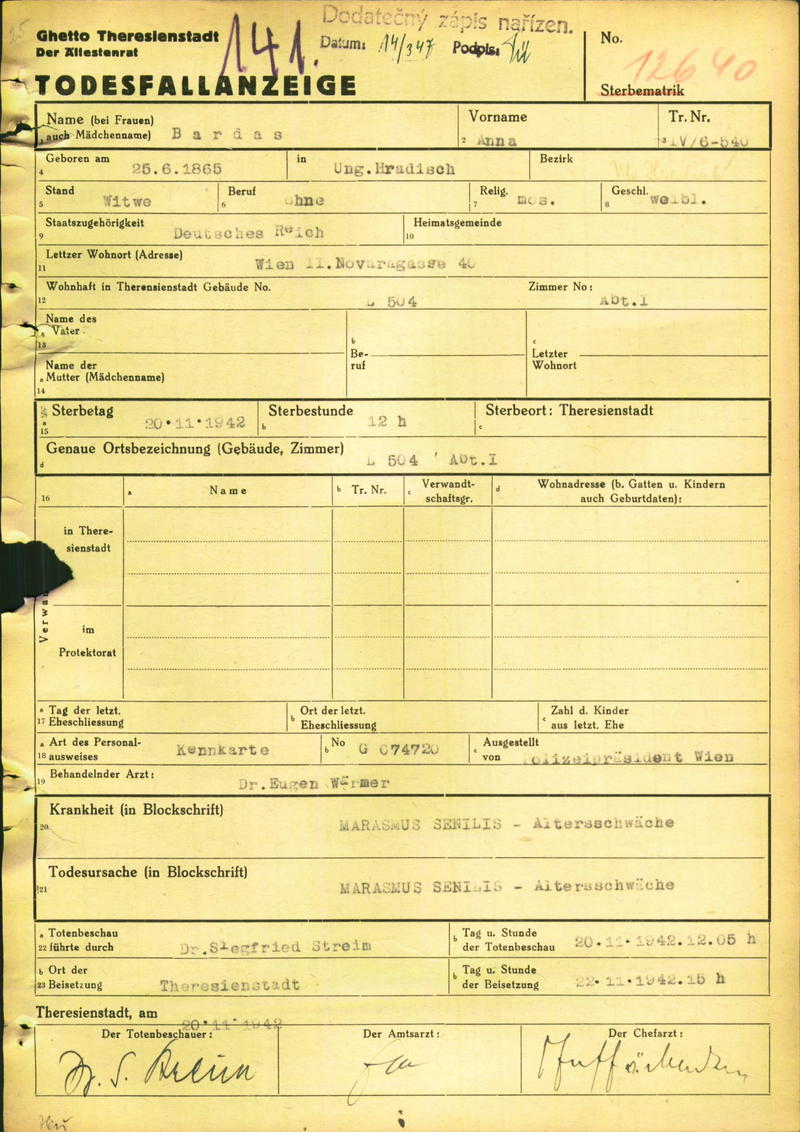 Ghetto Theresienstadt
Der Ältestenrat
141.
Dodatečný zápis nařízen.
Datum: 14/3 47 Podpis:
No.
12640
Sterbematrik
TODESFALLANZEIGE
Name (bei Frauen) auch Mädchenname) Bardas
Vorname
2 Anna
Tr. Nr.
3 IV/6-540
Geboren am
4 25.6.1865
in Ung.Hradisch
Bezirk
Stand
5 Witwe
Beruf
6 ohne
Relig.
7 mos.
Geschl.
8 weibl.
Staatszugehörigkeit
9 Deutsches Reich
Heimatsgemeinde
10
Lettzer Wohnort (Adresse)
11 Wien II.Novaragasse 40
Wohnhaft in Therensienstadt Gebäude No.
12 L 504
Zimmer No: Abt.I
Name des
a Vater
13
b
Be-
ruf
c
Letzter
Wohnort
Name der
a Mutter (Mädchenname)
14
Sterbetag
a
15 20.11.1942
Sterbestunde
b 12 h
Sterbeort: Theresienstadt
c
Genaue Ortsbezeichnung (Gebäude, Zimmer)
d L 504 ' Abt.I
16
a Name
b Tr. Nr.
c Verwandt-
schaftsgr.
d Wohnadresse (b. Gatten u. Kindern
auch Geburtdaten):
in There-
sienstadt
im
Protektorat
a Tag der letzt.
17 Eheschliessung
b Ort der letzt.
Eheschliessung
c Zahl d. Kinder
aus letzt. Ehe
a Art des Personal-
18 ausweises Kennkarte
b No G 074720
c Ausgestellt
von Polizeipräsident Wien
Behandelnder Arzt:
19 Dr.Eugen Wärmer
Krankheit (in Blockschrift)
20 MARASMUS SENILIS - Altersschwäche
Todesursache (in Blockschrift)
21 MARASMUS SENILIS - Altersschwäche
a Totenbeschau
22 führte durch Dr.Siegfried Streim
b Tag u. Stunde
der Totenbeschau 20.11.1942.12.05 h
b Ort der
23 Beisetzung Theresienstadt
b Tag u. Stunde
der Beisetzung 22.11.1942.15 h
Theresienstadt, am
20.11.1942
Der Totenbeschauer:
Der Amtsarzt:
Der Chefarzt:
Dr. S. Streim